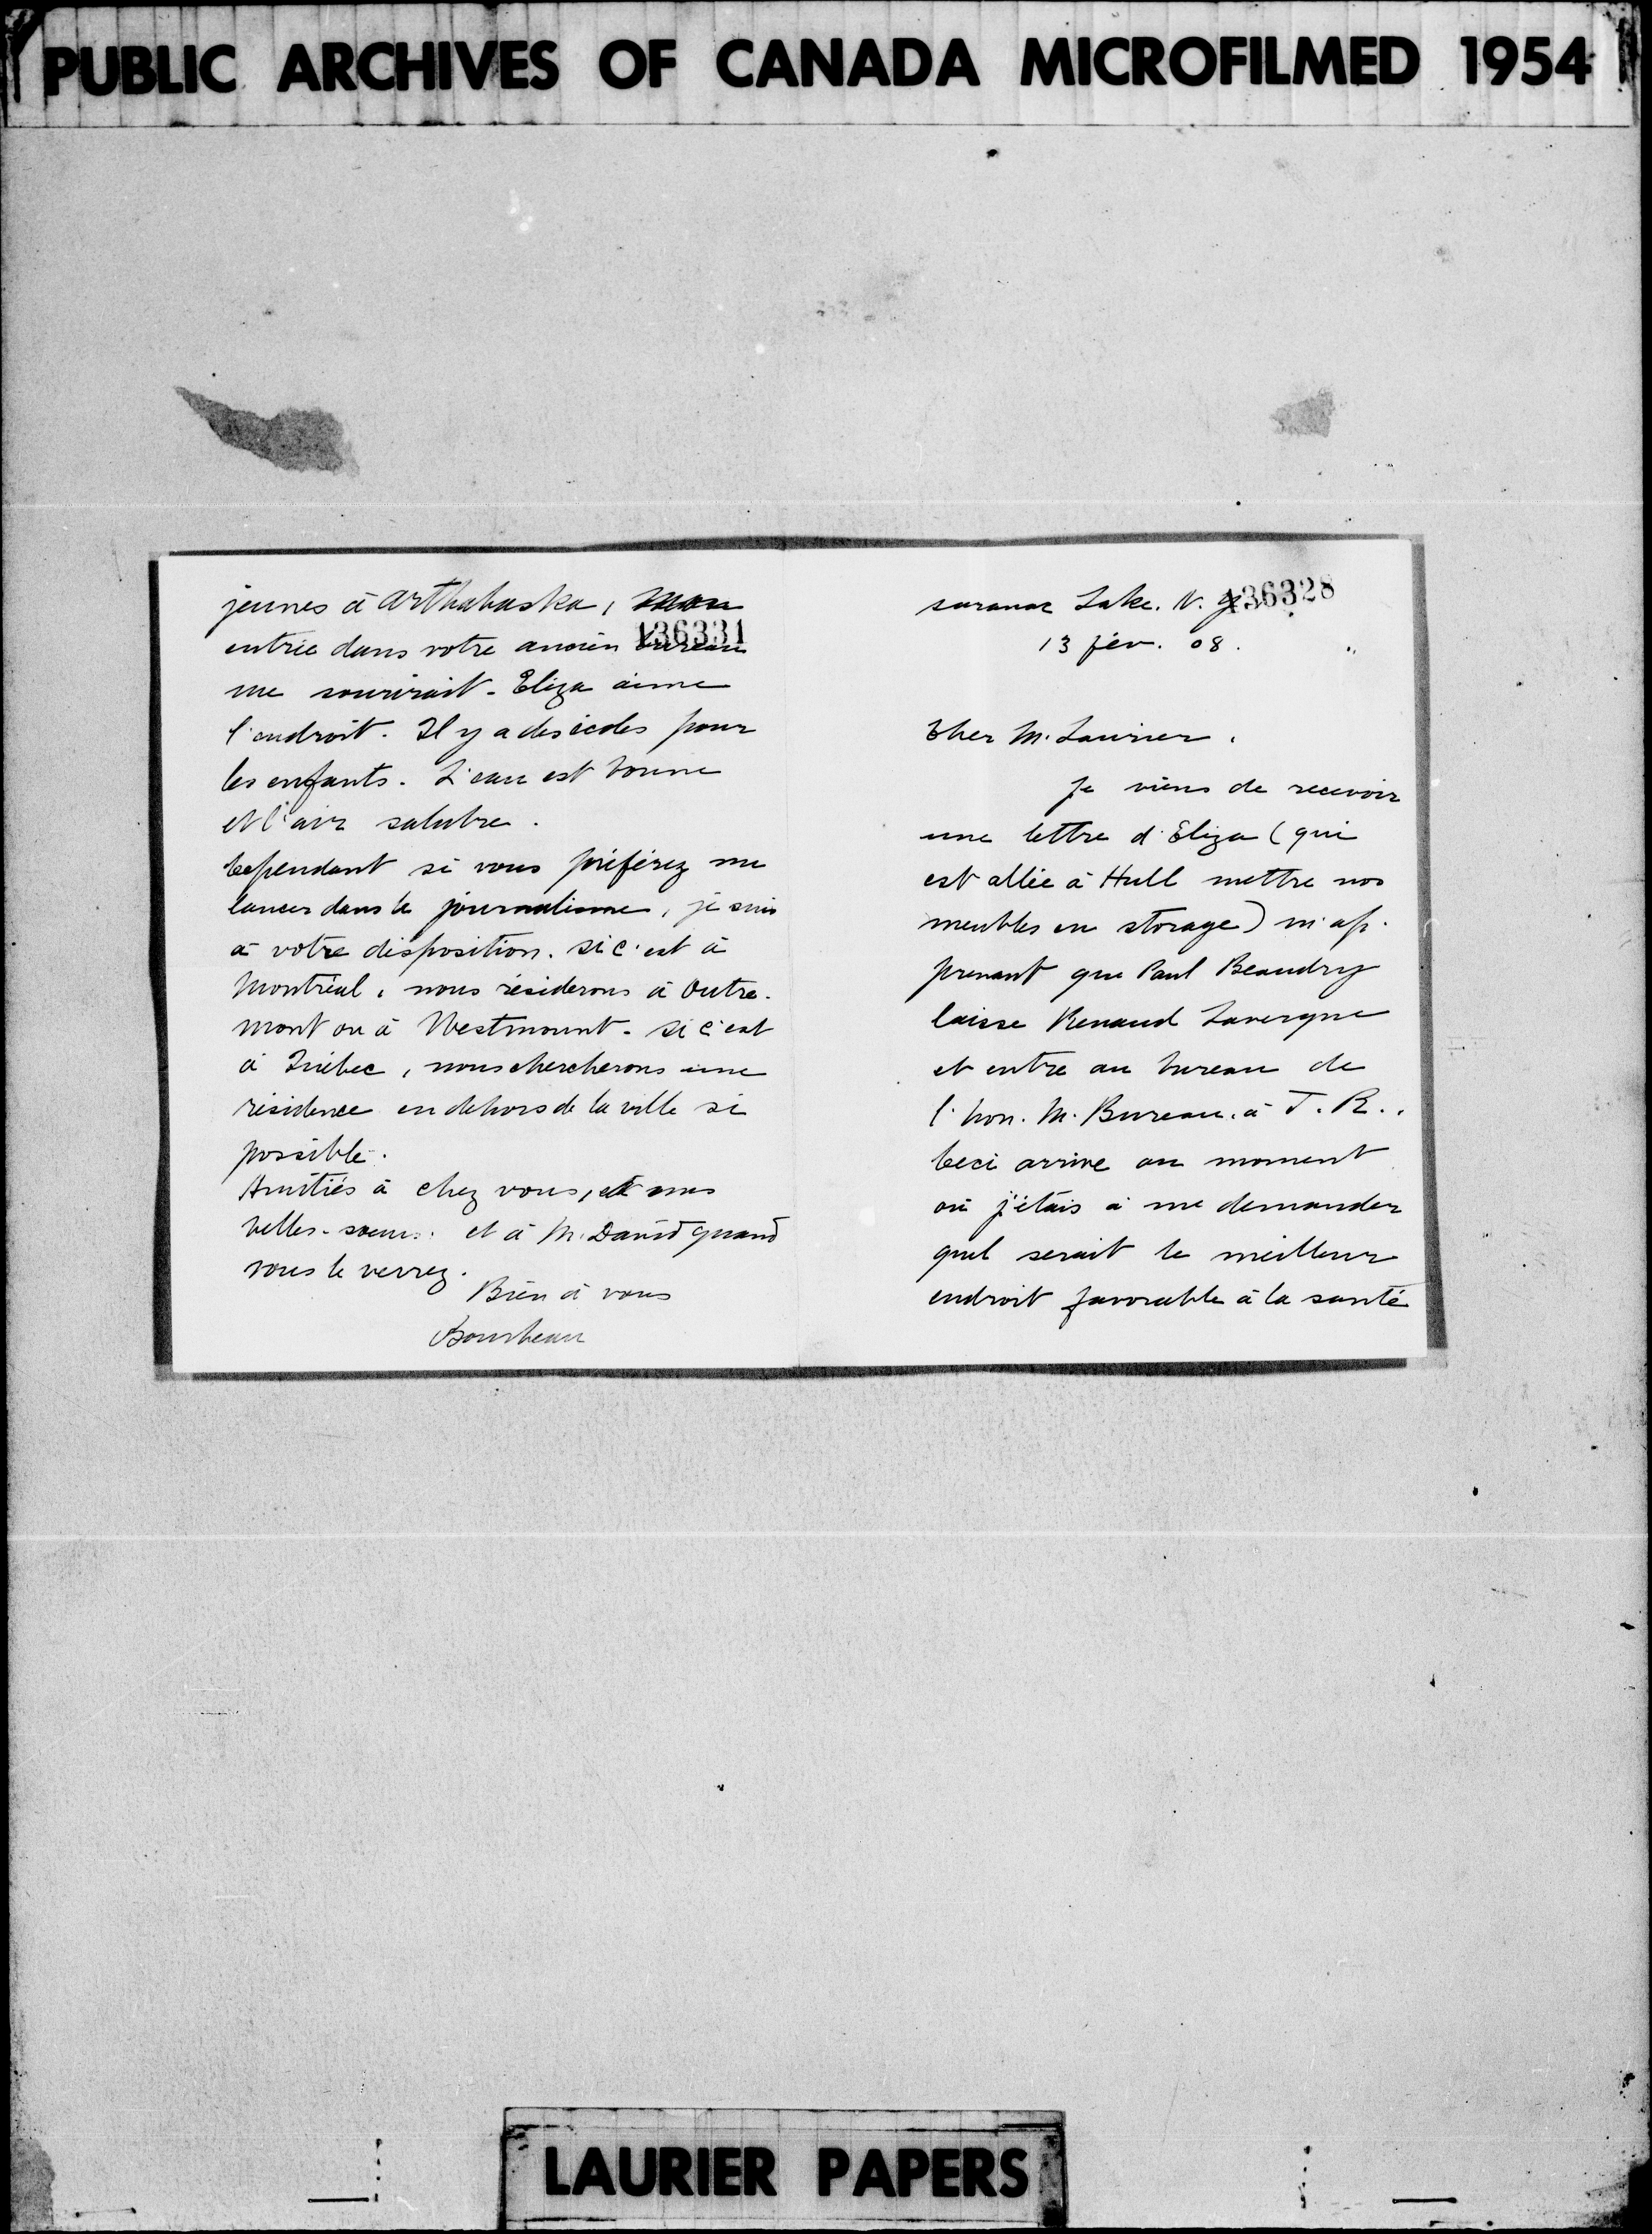 PUBLIC ARCHIVES OF CANADA MICROFILMED 1954
jeunes à Arthabaska, mon
136331
entrée dans votre ancien bureau
me sourirait. Eliza aime
l'endroit. Il y a des écoles pour
les enfants. L'eau est bonne
et l'air salubre.
Cependant si vous préférez me
lancer dans le journalisme, je suis
à votre disposition. Si c'est à
Montréal, nous résiderons à Outre-
mont ou à Westmount. Si c'est
à Québec, nous chercherons une
résidence en dehors de la ville si
possible.
Amitiés à chez vous, et mes
belles-soeurs. et à M. David quand
vous le verrez.
Bien à vous
Bourbeau
136328
Saranac Lake. N. Y.
13 fév. 08.
Cher M. Laurier.
Je viens de recevoir
une lettre d'Eliza (qui
est allée à Hull mettre nos
meubles en storage) m'ap-
prenant que Paul Beaudry
laisse Renaud Lavergne
et entre au bureau de
l'hon. M. Bureau. à T. R..
Ceci arrive au moment
où j'étais à me demander
quel serait le meilleur
endroit favorable à la santé
LAURIER PAPERS